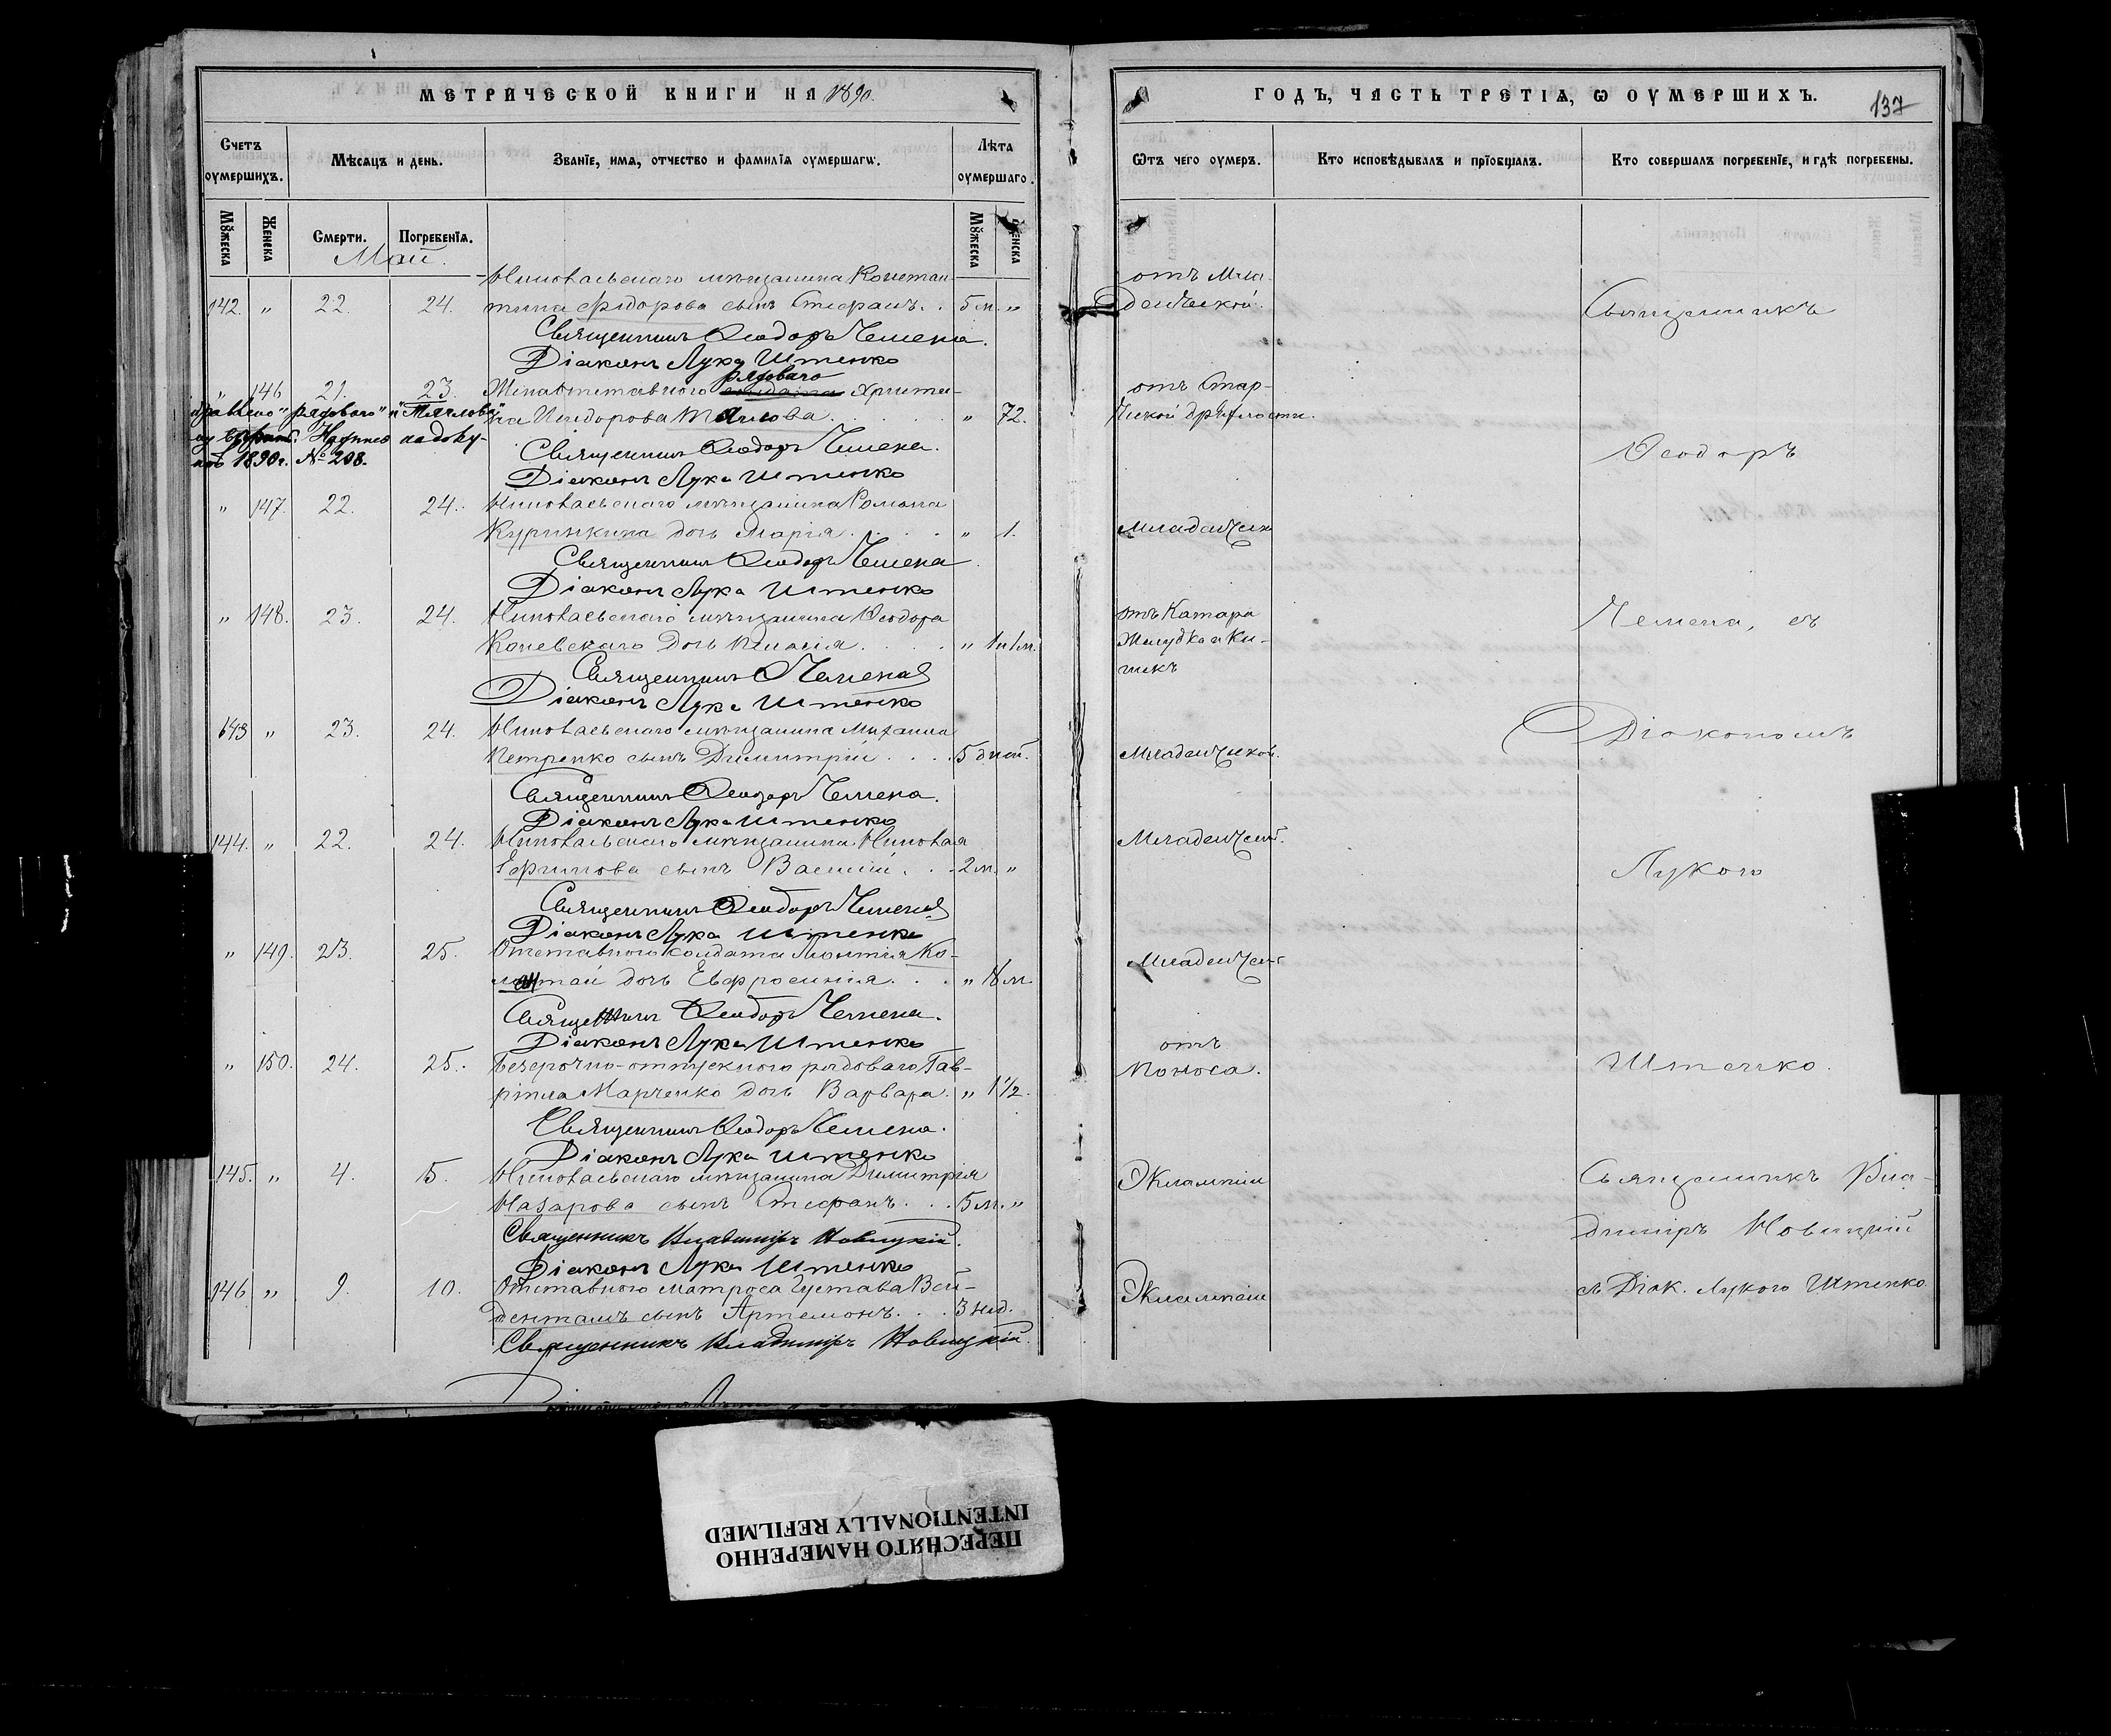 МЕТРИЧЕСКОЙ КНИГИ НА 1890.
Счетъ оумершихъ.
Мѣсяцъ и день.
Званіе, имя, отчество и фамилія оумершагѡ.
Лѣта оумершаго.
Мꙋжеска
Женска
Смерти.
Погребенія.
Мꙋжеска
Женска
Май.
Николаевскаго мѣщанина Констан-
142. " 22. 24. тина Ѳедорова сынъ Стефанъ. . 5 м. "
Священникъ Ѳеодоръ Чемена.
Діаконъ Лука Штенко
рядоваго
" 146 21. 23. Жена отставного Христи-
на Исидорова . . " 72.
"рядоваго" и
1890 г. № 208.
Священникъ Ѳеодоръ Чемена.
Діаконъ Лука Штенко
" 147. 22. 24. Николаевскаго мѣщанина Романа
Куринкина дочь Марія . . . . " 1.
Священникъ Ѳеодоръ Чемена
Діаконъ Лука Штенко
" 148. 23. 24. Николаевскаго мѣщанина Ѳеодора
Коневскаго дочь . . . . "
Священникъ Ѳ Чемена
Діаконъ Лука Штенко
143 " 23. 24. Николаевскаго мѣщанина Михаила
Петренко сынъ Димитрій . . . . 5 дней.
Священникъ Ѳеодоръ Чемена.
Діаконъ Лука Штенко
144. " 22. 24. Николаевскаго мѣщанина Николая
Ефимова сынъ Василій . . . 2 м. "
Священникъ Ѳеодоръ Чемена
Діаконъ Лука Штенко
" 149. 23. 25. Отставного солдата Леонтія Ко-
дочь Евфросинія . . . " 8 м.
Священникъ Ѳеодоръ Чемена.
Діаконъ Лука Штенко
" 150. 24. 25. Безсрочно-отпускного рядоваго Гав-
ріила Марченко дочь Варвара. " 1½.
Священникъ Ѳеодоръ Чемена.
Діаконъ Лука Штенко
145. " 4. 5. Николаевскаго мѣщанина Димитрія
Назарова сынъ Стефанъ. . . 5 м. "
Священникъ Владиміръ Новицкій.
Діаконъ Лука Штенко
146 " 9. 10. Отставного матроса Густава Вей-
сынъ Артемонъ. . . 3 нед.
Священникъ Владиміръ Новицкій.
ГОДЪ, ЧАСТЬ ТРЕТІЯ, Ѡ ОУМЕРШИХЪ.
137
Ѿтъ чего оумеръ.
Кто исповѣдывалъ и прїобщалъ.
Кто совершалъ погребенїе, и гдѣ погребены.
отъ Мла-
денческой.
Священникъ
отъ Стар-
ческой дряхлости.
Ѳеодоръ
Младенческ
отъ Катара
Желудка и Ки-
шекъ
Чемена, съ
Діакономъ
Младенческой.
Младенческ.
Лукою
Младенческ
отъ
Поноса.
Штенко.
Эклампсіи
Священникъ Вла-
диміръ Новицкій
Эклампсіи
съ Діак. Лукою Штенко.
ПЕРЕСНЯТО НАМЕРЕННО
INTENTIONALLY REFILMED